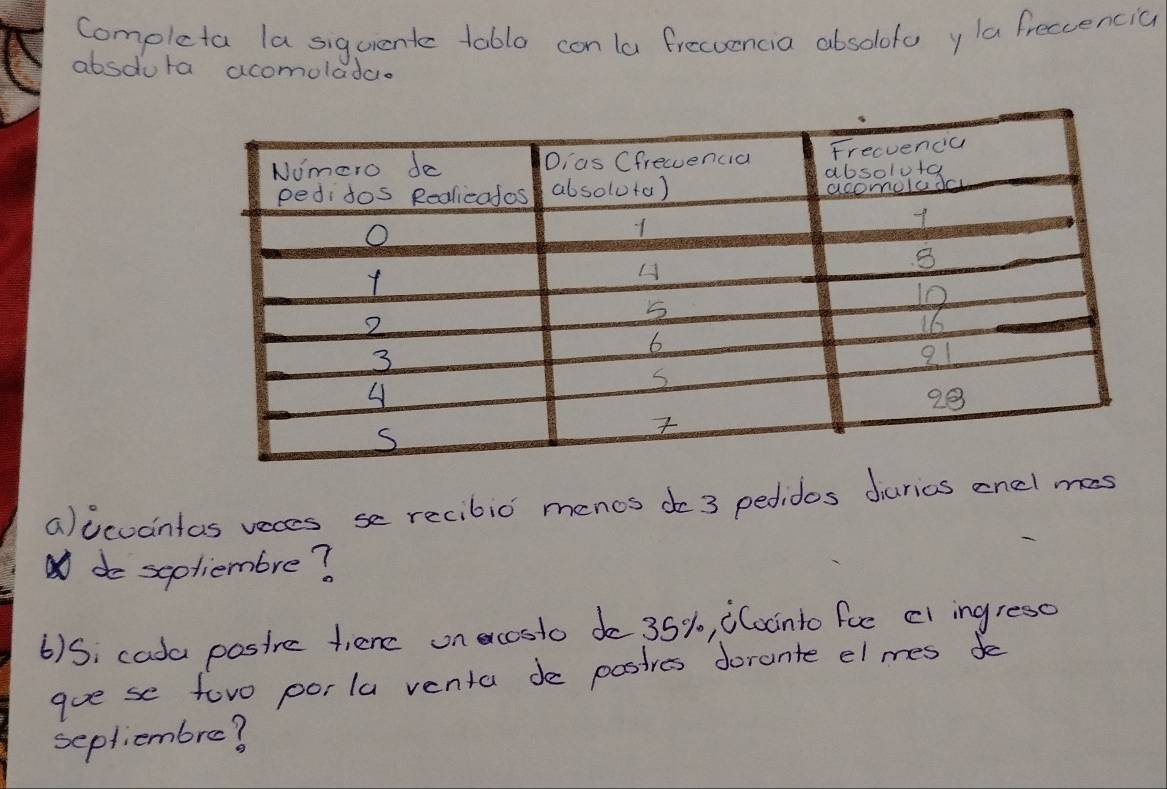 Completa la siguiente tabla con la frecuencia absoluta y la frecuencia
absoluta acomulada.
Número de pedidos Realicados | Dias (frecuencia absoluta) | Frecuencia absoluta acomulada
0 | 1 | 1
1 | 4 | 5
2 | 5 | 10
3 | 6 | 16
4 | 5 | 21
5 | 7 | 28
a) ¿cuántas veces se recibió menos de 3 pedidos diarios en el mes
de septiembre?
b) Si cada postre tiene un costo de 35%, ¿Cuánto fue el ingreso
que se tuvo por la venta de postres durante el mes de
septiembre?